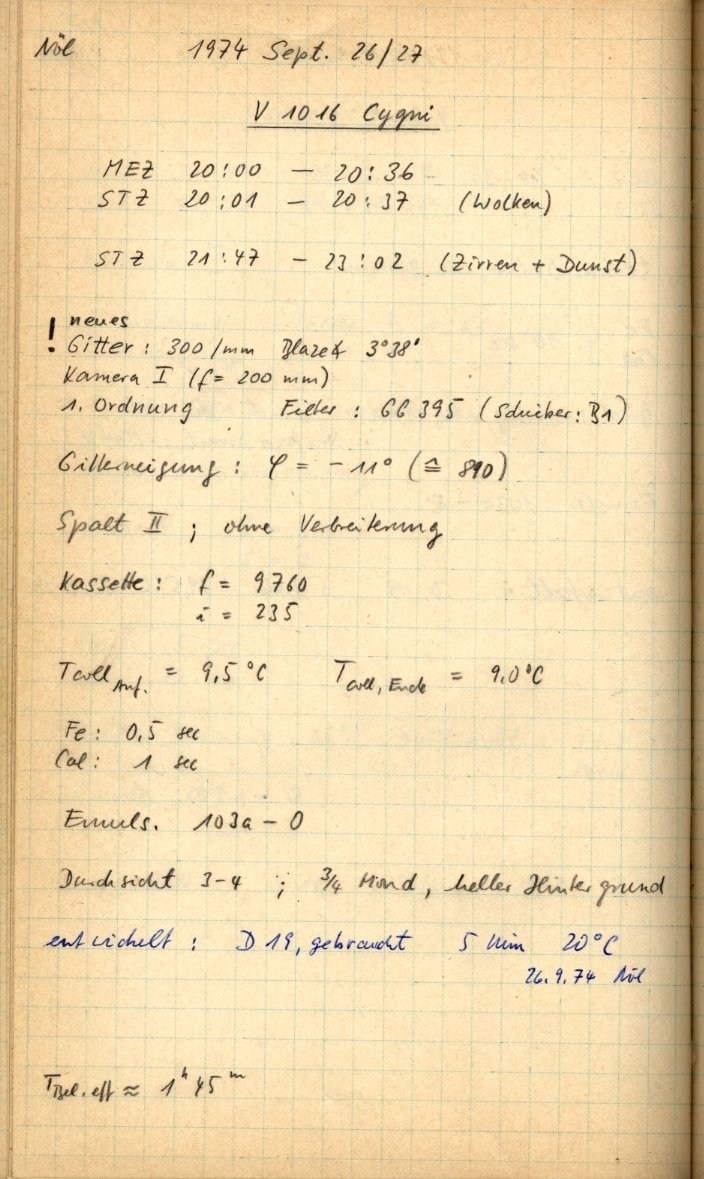 Nöl 1974 Sept. 26/27
V 1016 Cygni
MEZ 20:00 — 20:36
STZ 20:01 — 20:37 (Wolken)
STZ 21:47 — 23:02 (Zirren + Dunst)
! neues
Gitter: 300/mm Blaze∢ 3°38'
Kamera I (f = 200 mm)
1. Ordnung Filter: GG 395 (Schieber: B1)
Gitterneigung: φ = -11° (≙ 890)
Spalt II ; ohne Verbreiterung
Kassette: f = 9760
i = 235
Tcoll Anf. = 9,5 °C T coll, Ende = 9,0°C
Fe: 0,5 sec
Cal: 1 sec
Emuls. 103a - O
Durchsicht 3-4 ; 3/4 Mond, heller Hintergrund
entwickelt: D 19, gebraucht 5 Min 20°C
26.9.74 Nöl
T Bel. eff ≈ 1ʰ 45ᵐ